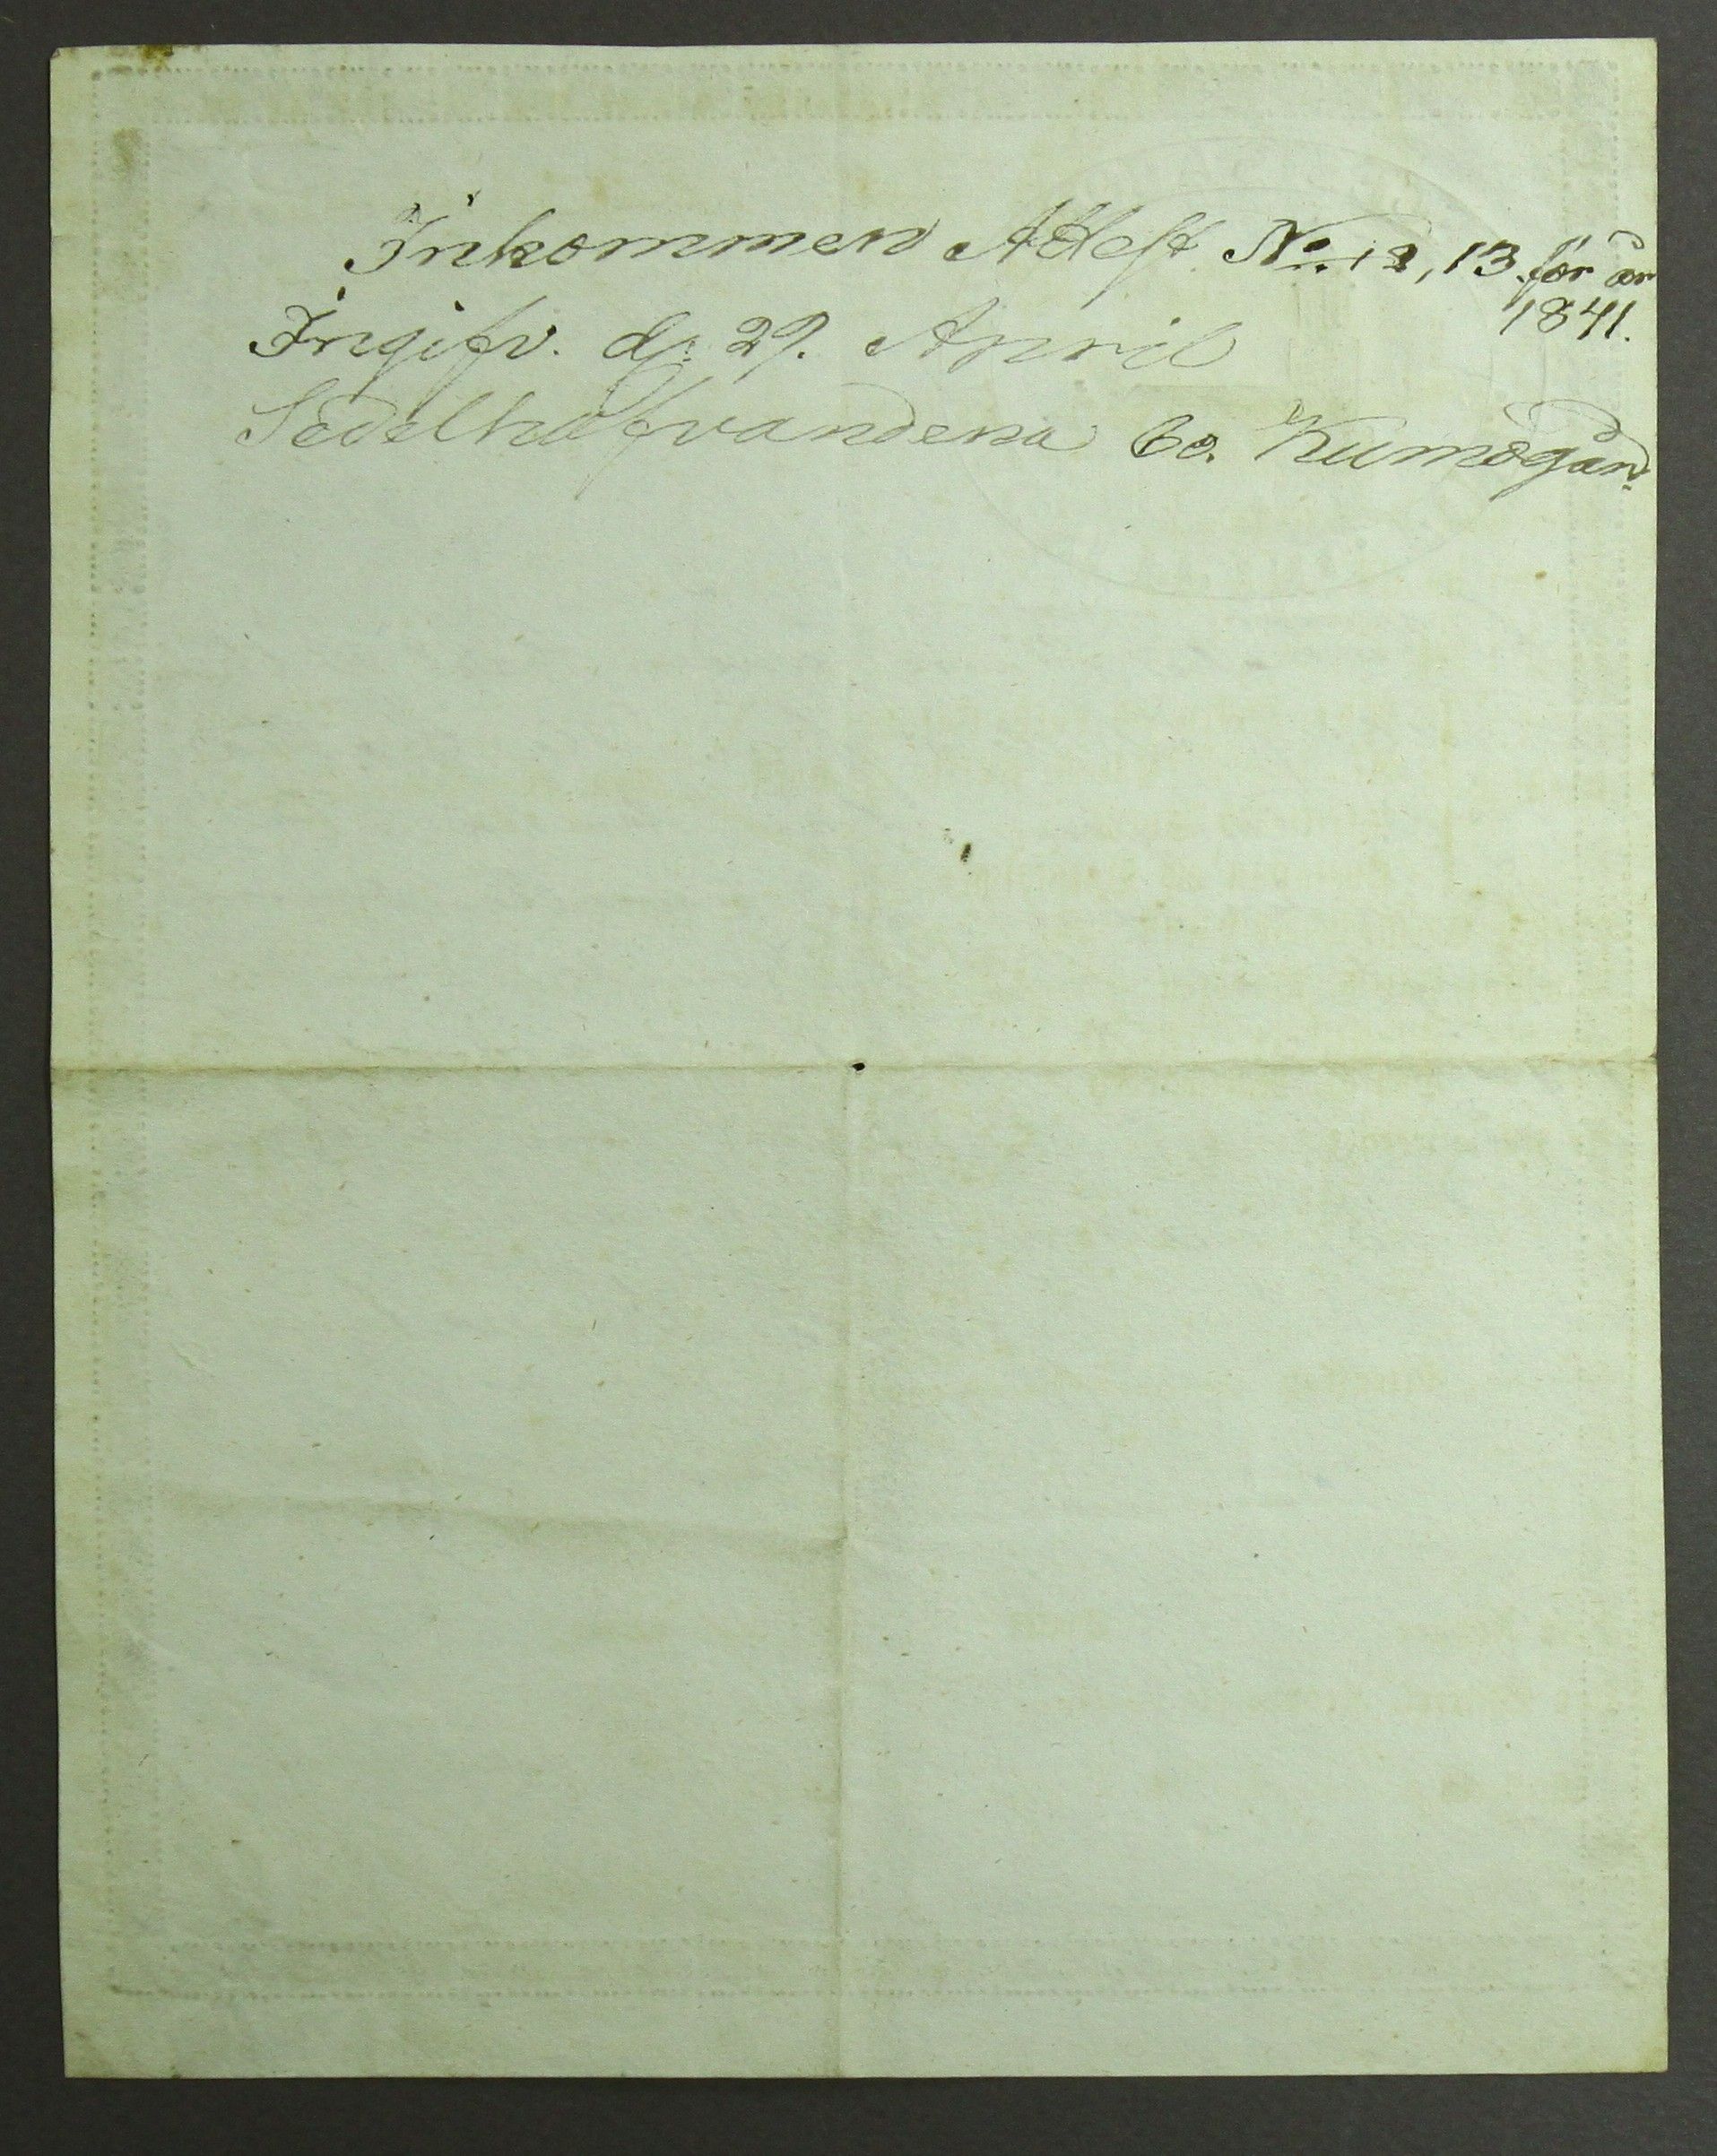 Inkommen Attest No. 12, 13 för år
1841.
Ingifv. d: 29. April
Sedelhafvandena bo. Kumogård.